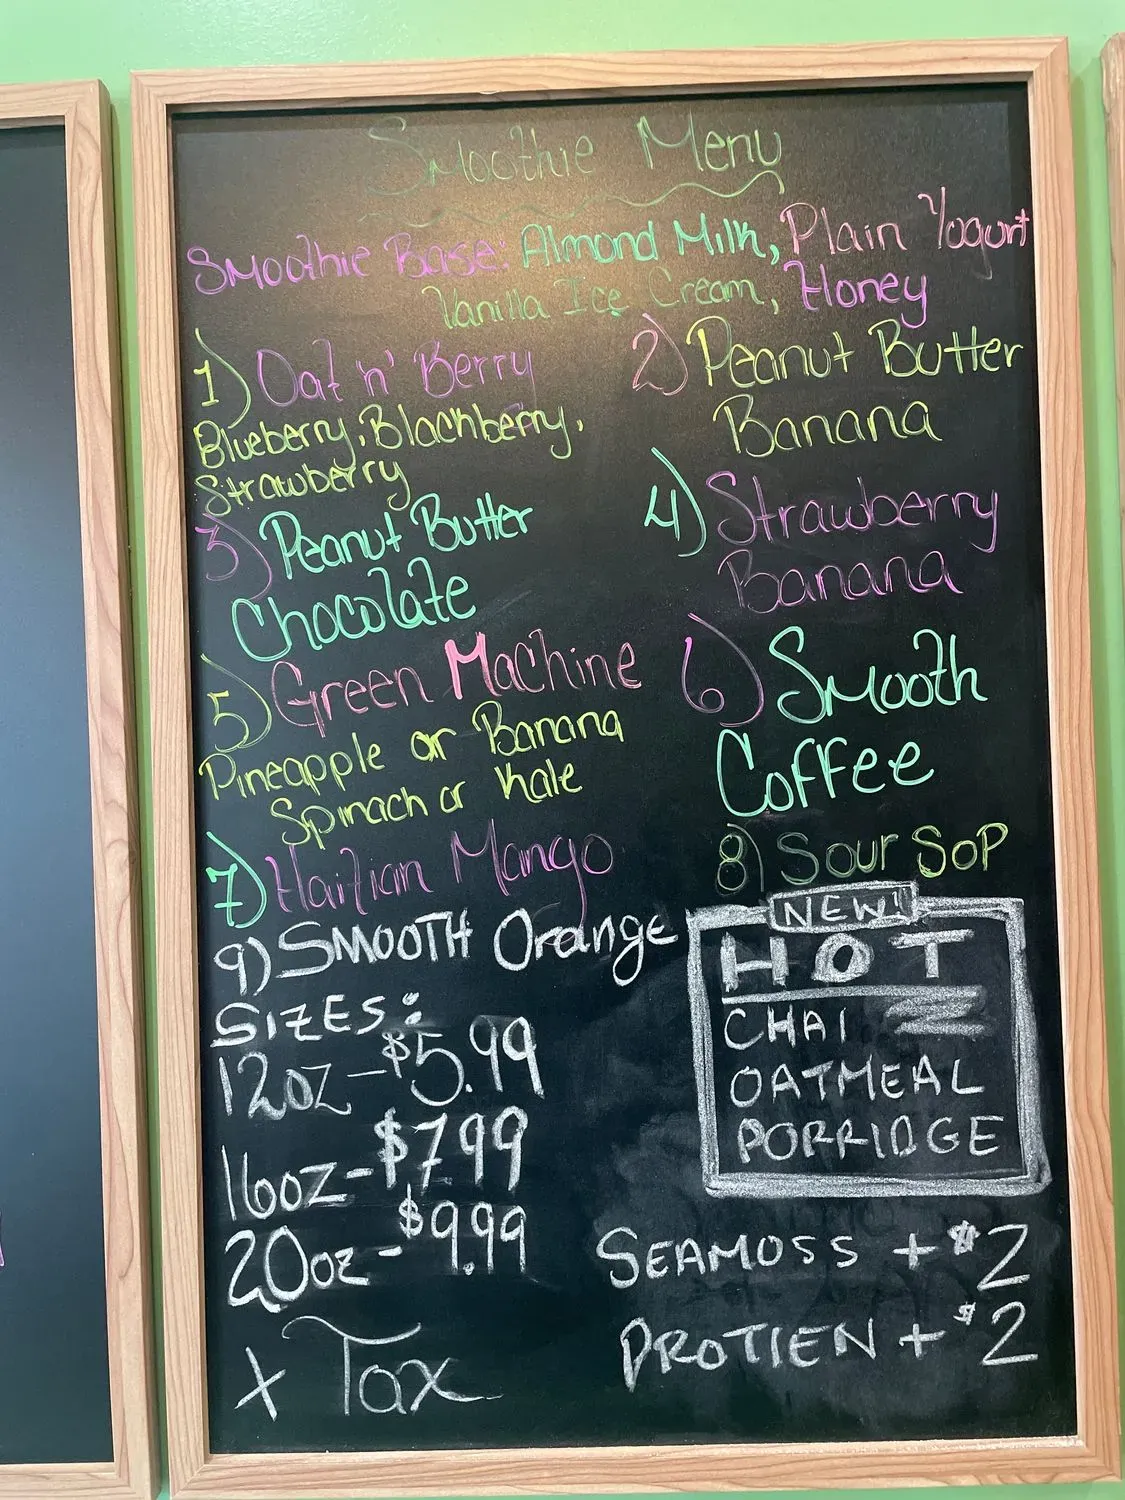 Smoothie Menu
Smoothie Base: Almond Milk, Plain Yogurt
Vanilla Ice Cream, Honey
1) Oat n' Berry
Blueberry, Blackberry,
Strawberry
2) Peanut Butter
Banana
3) Peanut Butter
Chocolate
4) Strawberry
Banana
5) Green Machine
Pineapple or Banana
Spinach or Kale
6) Smooth
Coffee
7) Haitian Mango
8) Sour Sop
9) SMOOTH Orange
SIZES:
12oz - $5.99
16oz - $7.99
20oz - $9.99
+ Tax
NEW!
HOT
CHAI
OATMEAL
PORRIDGE
SEAMOSS + $2
PROTIEN + $2